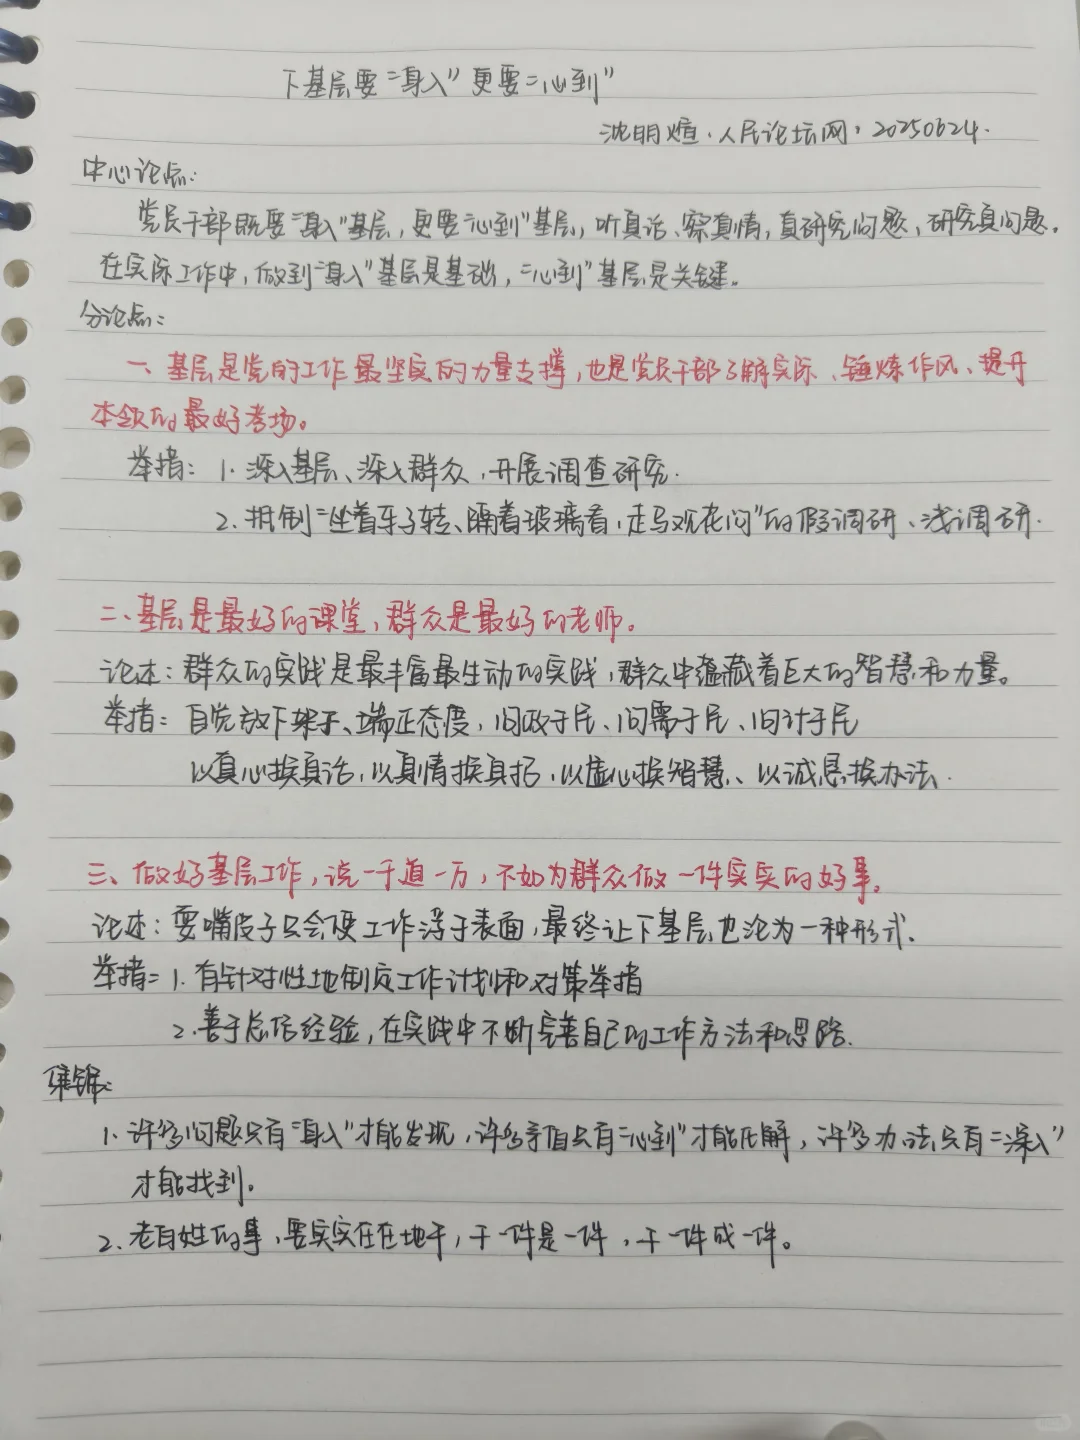 下基层要“身入”更要“心到”
沈明煊·人民论坛网·20250624.
中心论点:
党员干部既要“身入”基层,更要“心到”基层,听真话、察真情,真研究问题、研究真问题。
在实际工作中,做到“身入”基层是基础,“心到”基层是关键。
分论点:
一、基层是党的工作最坚实的力量支撑,也是党员干部了解实际、锤炼作风、提升
本领的最好考场。
举措: 1.深入基层、深入群众,开展调查研究.
2.抵制“坐着车子转、隔着玻璃看,走马观花问”的假调研、浅调研.
二、基层是最好的课堂,群众是最好的老师。
论述:群众的实践是最丰富最生动的实践,群众中蕴藏着巨大的智慧和力量。
举措: 自觉放下架子、端正态度,问政于民、问需于民、问计于民
以真心换真话,以真情换真招,以虚心换智慧、以诚恳换办法.
三、做好基层工作,说一千道一万,不如为群众做一件实实的好事.
论述:耍嘴皮子只会使工作浮于表面,最终让下基层也沦为一种形式.
举措: 1.有针对性地制定工作计划和对策举措
2.善于总结经验,在实践中不断完善自己的工作方法和思路.
集锦:
1.许多问题只有“身入”才能发现,许多矛盾只有“心到”才能化解,许多办法只有“深入”
才能找到。
2.老百姓的事,要实实在在地干,干一件是一件,干一件成一件。